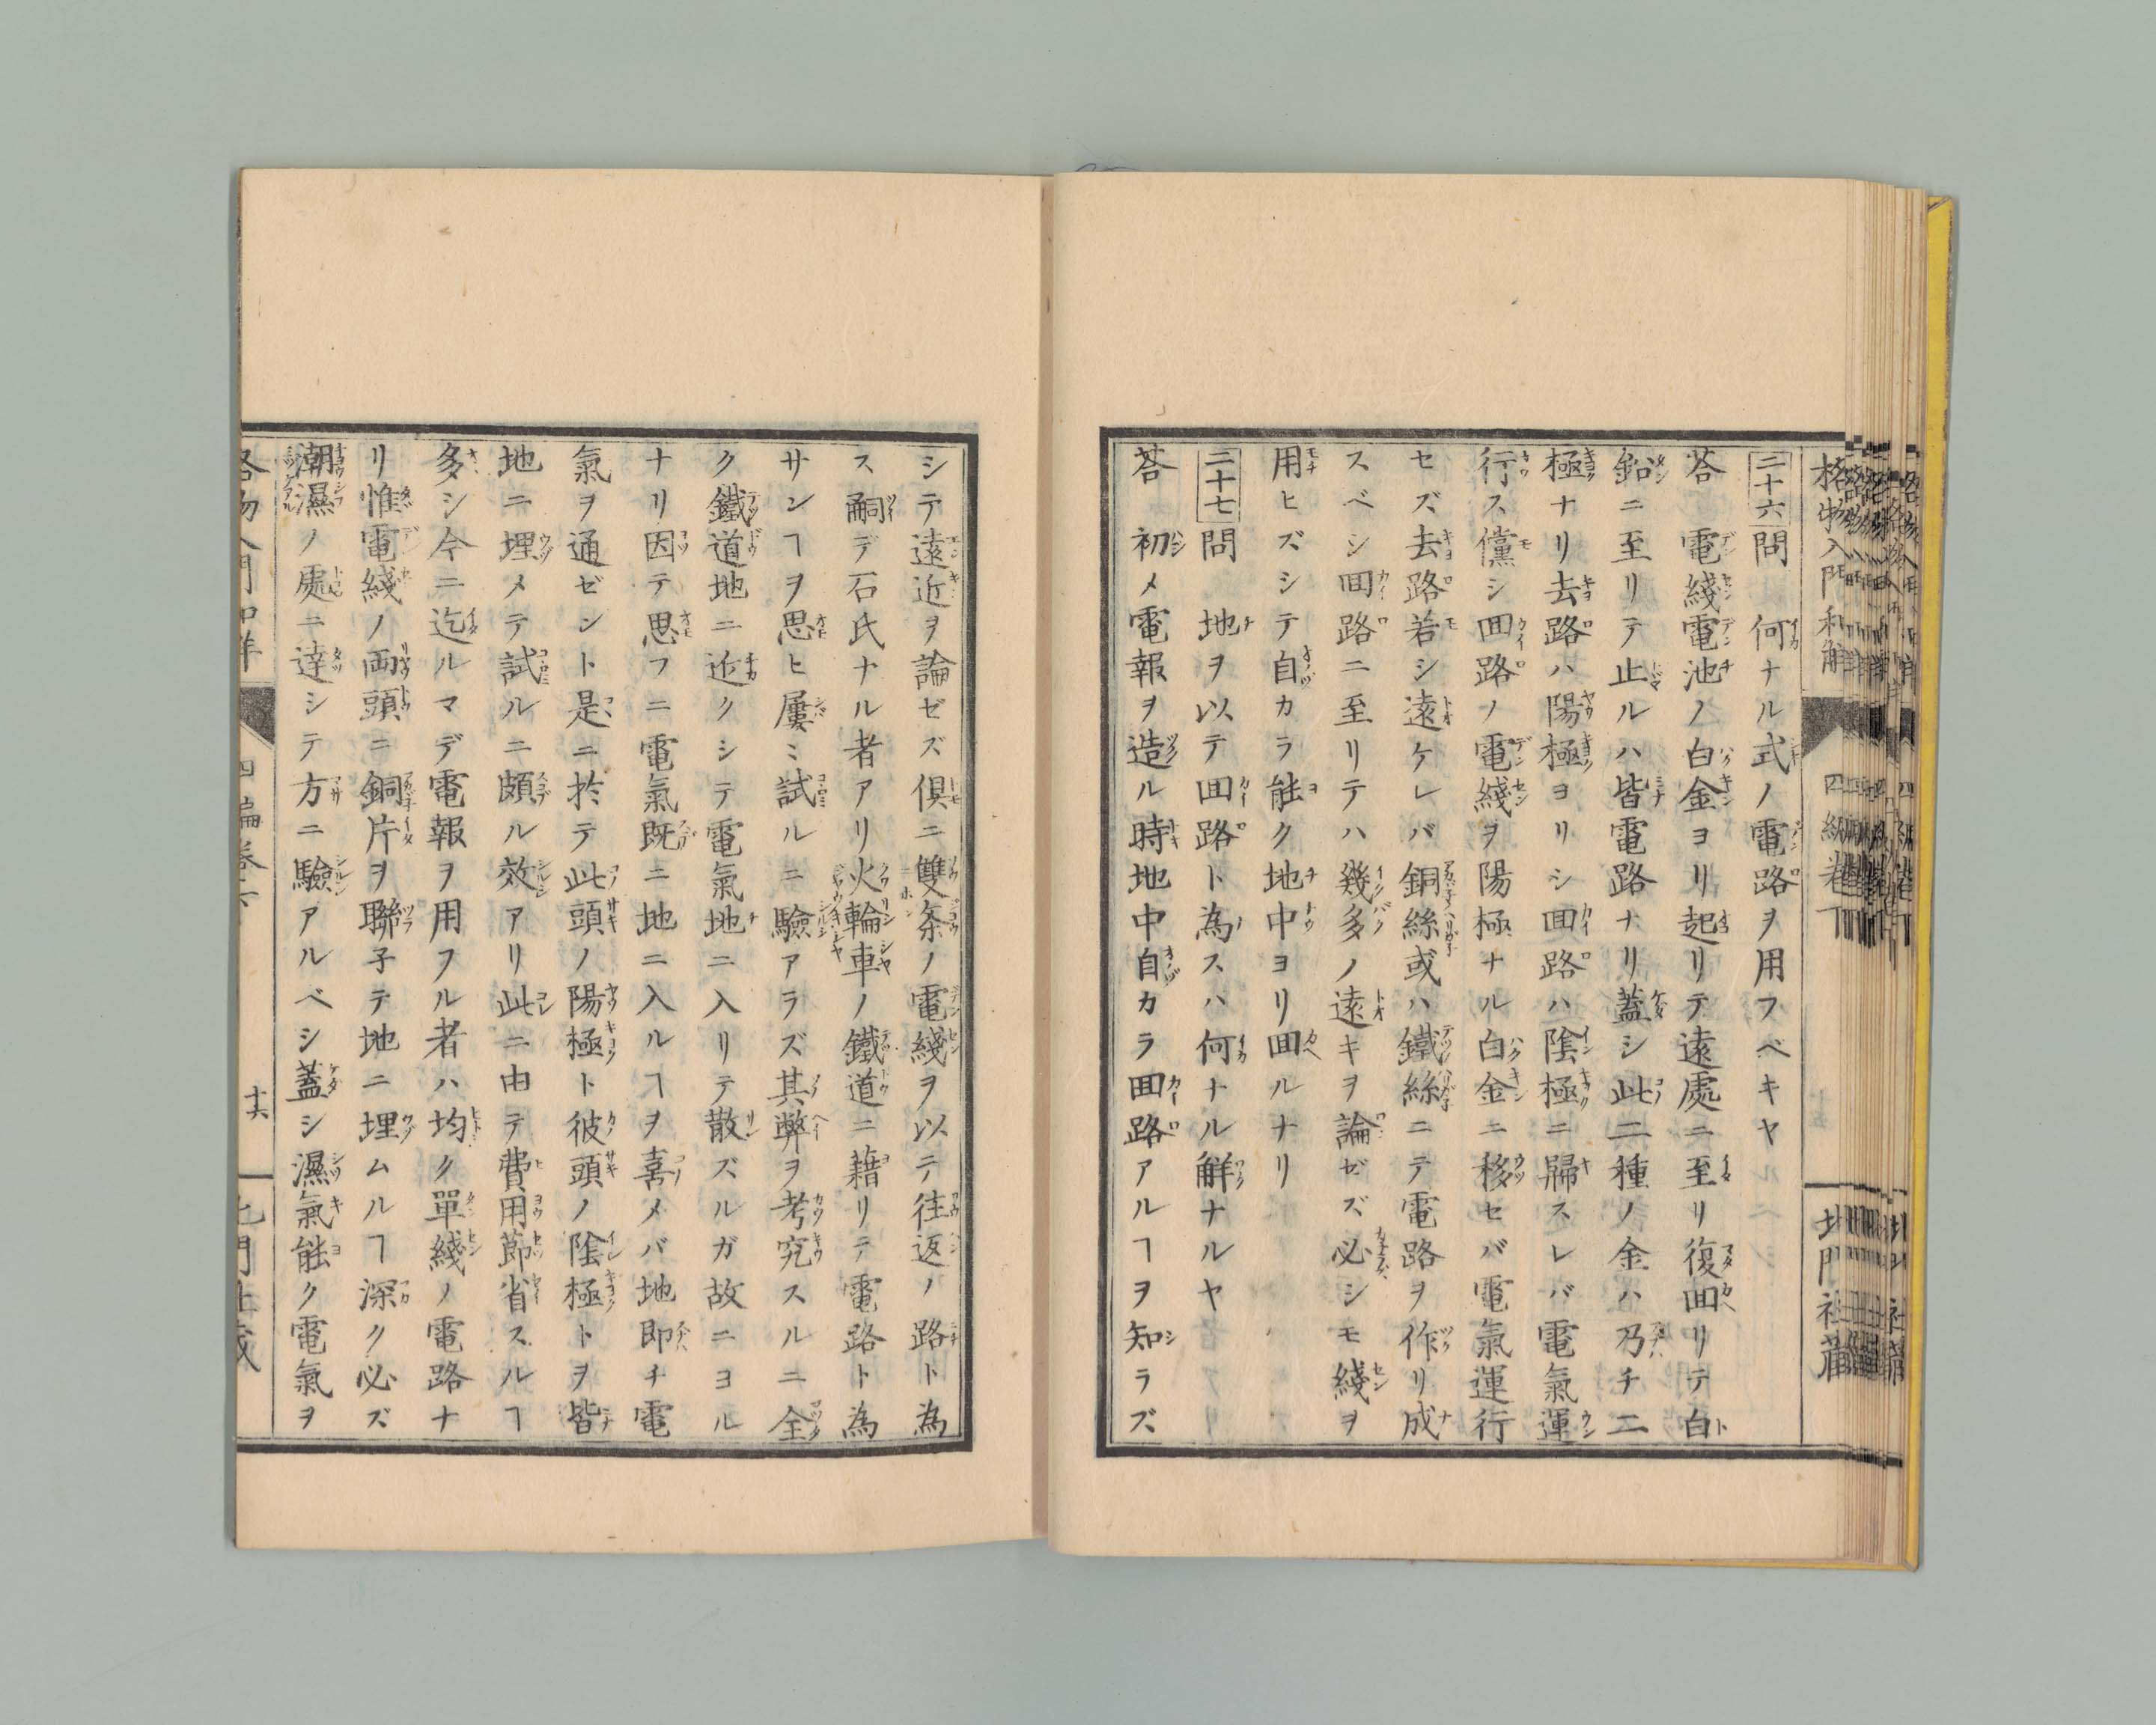 格物入門和解 四編巻下 北門社蔵
二十六問 何ナル式ノ電路ヲ用フベキヤ
荅 電綫電池ノ白金ヨリ起リテ遠處ニ至リ復囬リテ白
鉛ニ至リテ止ルハ皆電路ナリ蓋シ此二種ノ金ハ乃チ二
極ナリ去路ハ陽極ヨリシ囬路ハ陰極ニ歸スレバ電氣運
行ス儻シ囬路ノ電綫ヲ陽極ナル白金ニ移セバ電氣運行
セズ去路若シ遠ケレバ銅絲或ハ鐵絲ニテ電路ヲ作リ成
スベシ囬路ニ至リテハ幾多ノ遠キヲ論ゼズ必シモ綫ヲ
用ヒズシテ自カラ能ク地中ヨリ囬ルナリ
二十七問 地ヲ以テ囬路ト為スハ何ナル解ナルヤ
荅 初メ電報ヲ造ル時地中自カラ囬路アルヿヲ知ラズ
シテ遠近ヲ論ゼズ俱ニ雙条ノ電綫ヲ以テ往返ノ路ト為
ス嗣デ石氏ナル者アリ火輪車ノ鐵道ニ藉リテ電路ト為
サンヿヲ思ヒ屢ミ試ルニ驗アラズ其弊ヲ考究スルニ全
ク鐵道地ニ近クシテ電氣地ニ入リテ散ズルガ故ニヨル
ナリ因テ思フニ電氣既ニ地ニ入ルヿヲ喜メバ地即チ電
氣ヲ通ゼント是ニ於テ此頭ノ陽極ト彼頭ノ陰極トヲ皆
地ニ埋メテ試ルニ頗ル效アリ此ニ由テ費用節省スルヿ
多シ今ニ迄ルマデ電報ヲ用フル者ハ均ク單綫ノ電路ナ
リ惟電綫ノ両頭ニ銅片ヲ聯子テ地ニ埋ムルヿ深ク必ズ
潮濕ノ處ニ達シテ方ニ驗アルベシ蓋シ濕氣能ク電氣ヲ
格物入門和解 四編巻下 十六 北門社蔵